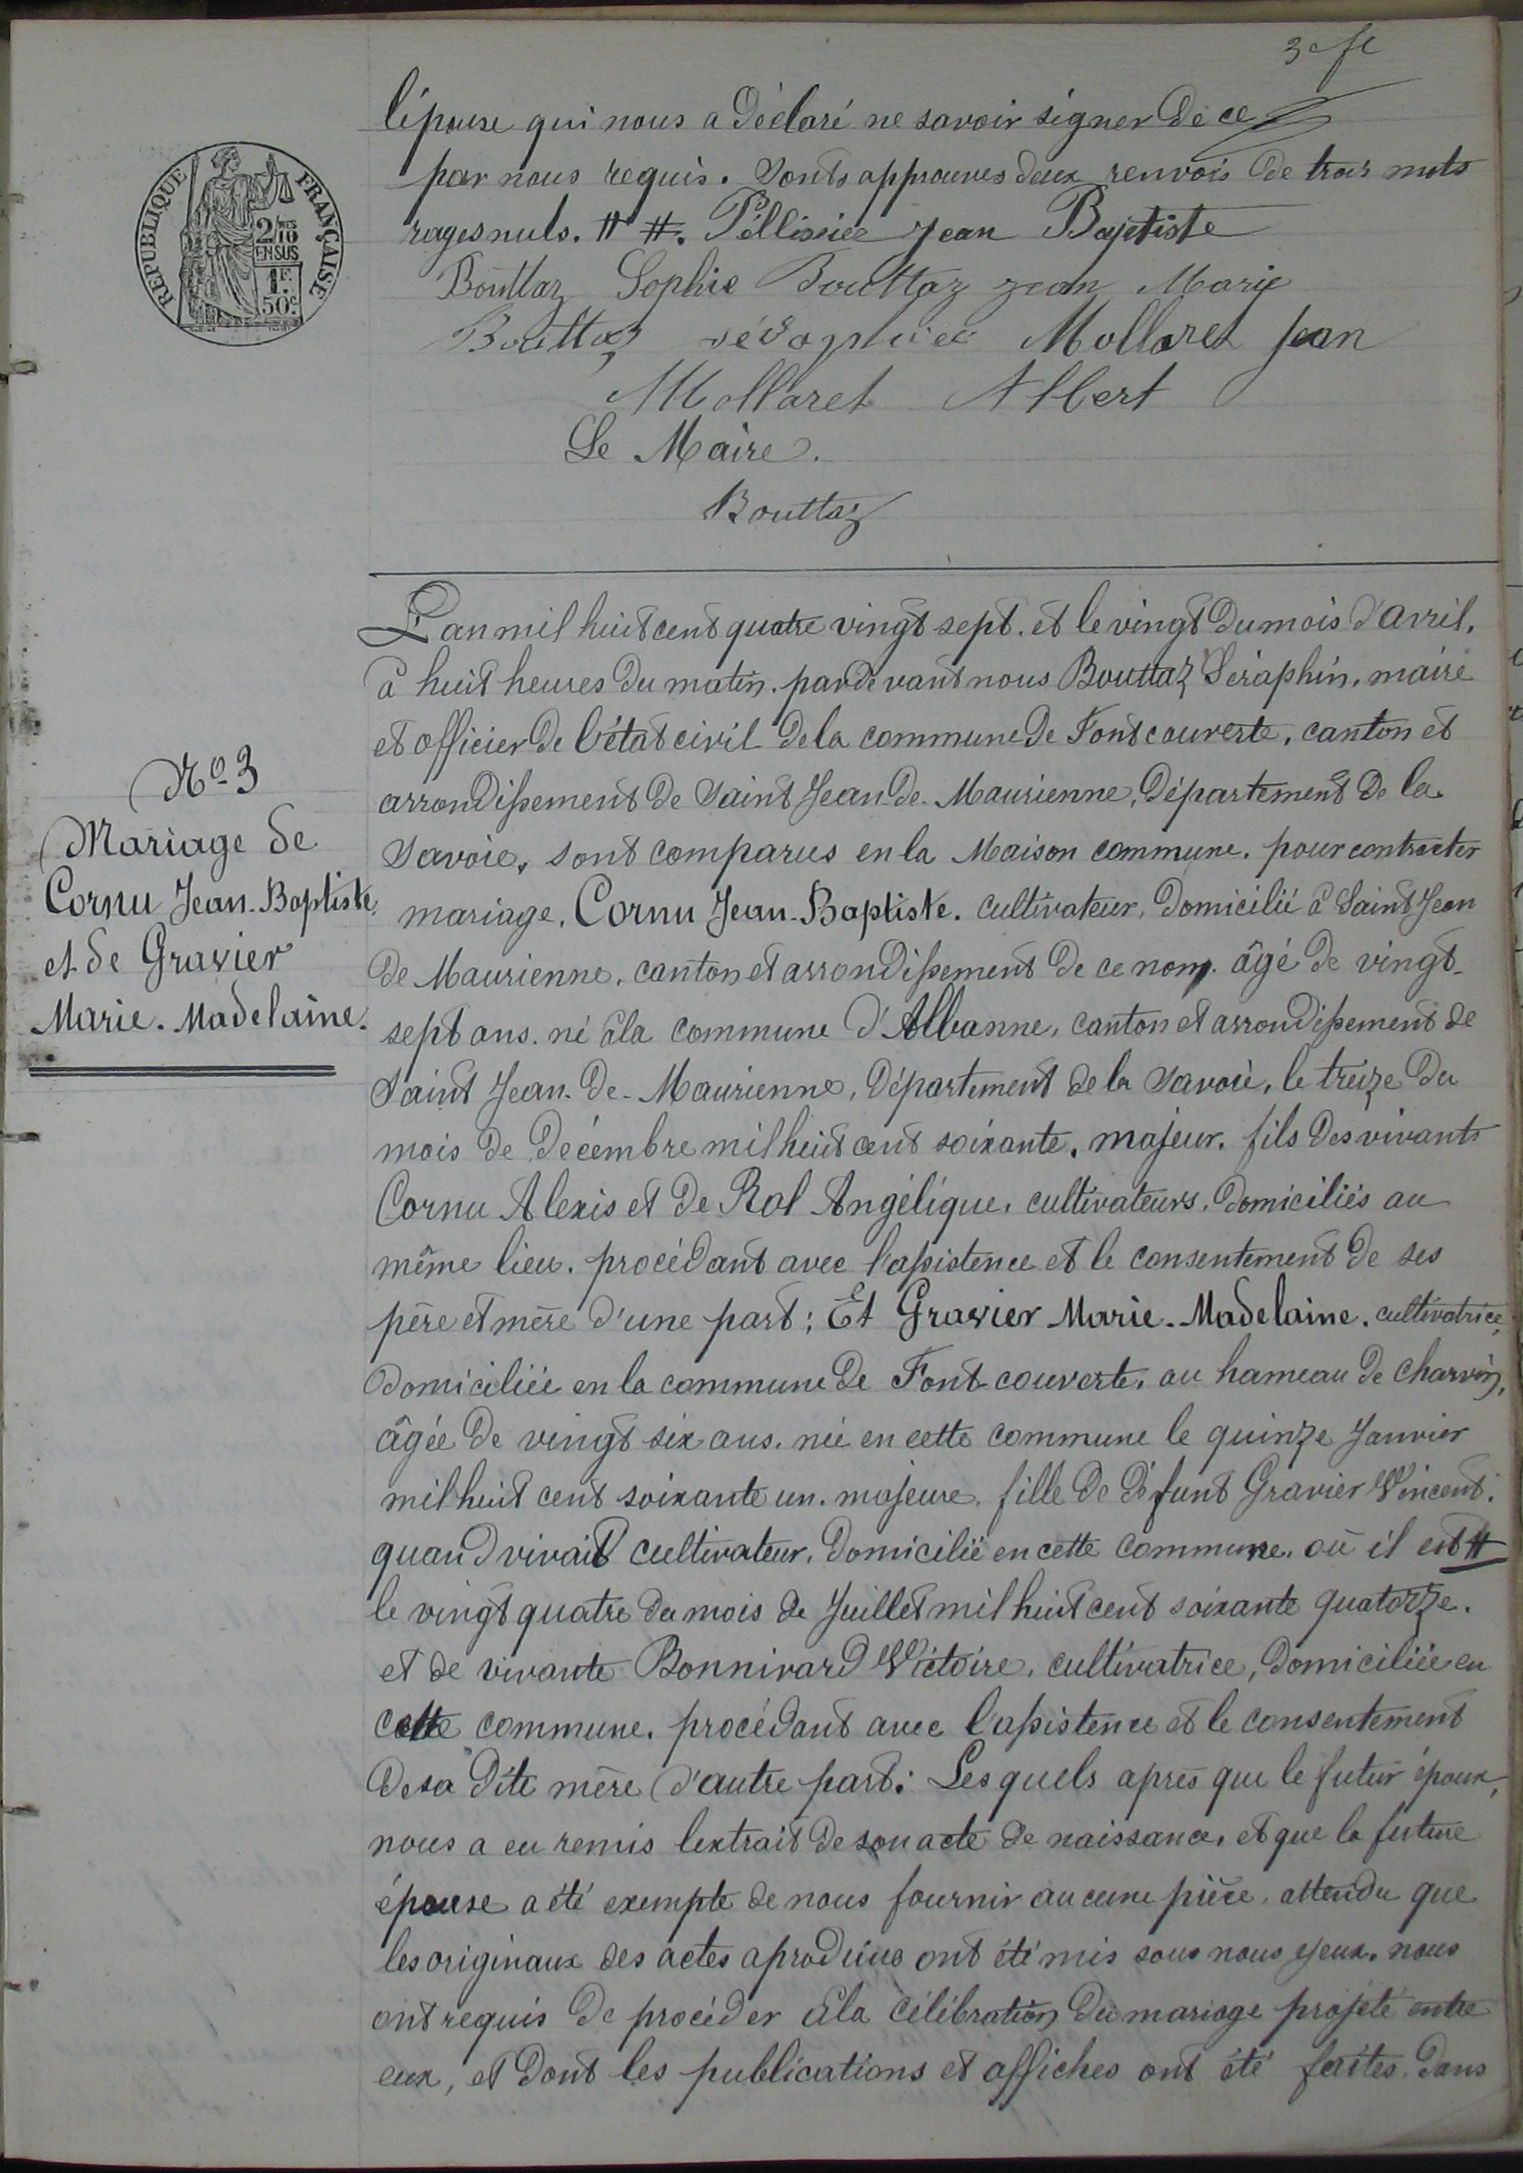 3e fe
l'épouse qui nous a déclaré ne savoir signer de ce
par nous requis. Sonts approuvés deux renvois de trois mots
rayés nuls. # #. Pellissier Jean Baptiste
Bouttaz Sophie Bouttaz Jean Marie
Bouttaz Mollaret Jean
Mollaret Albert
Le Maire.
Bouttaz
RÉPUBLIQUE FRANÇAISE
2/10
EN SUS
1F.
50c.
No 3
Mariage de
Cornu Jean-Baptiste
et de Gravier
Marie-Madelaine.
L'an mil huit cent quatre vingt sept. et le vingt du mois d'avril,
à huit heures du matin. par devant nous Bouttaz Séraphin, maire
et officier de l'état civil de la commune de Fontcouverte, canton et
arrondissement de Saint Jean-de-Maurienne, département de la
Savoie, sont comparus en la Maison commune. pour contracter
mariage, Cornu Jean-Baptiste. cultivateur, domicilié à Saint Jean
de Maurienne, canton et arrondissement de ce nom, âgé de vingt-
sept ans. né à la commune d'Albanne, canton et arrondissement de
Saint Jean-de-Maurienne, département de la Savoie, le treize du
mois de décembre mil huit cent soixante, majeur, fils des vivants
Cornu Alexis et de Rol Angélique, cultivateurs, domiciliés au
même lieu. procédant avec l'assistence et le consentement de ses
père et mère d'une part; Et Gravier Marie-Madelaine. cultivatrice,
domiciliée en la commune de Fontcouverte, au hameau de Charvin,
âgée de vingt six ans. née en cette commune le quinze Janvier
mil huit cent soixante un. majeure, fille de défunt Gravier Vincent.
quand vivait cultivateur, domicilié en cette commune. où il est #
le vingt quatre du mois de Juillet mil huit cent soixante quatorze.
et de vivante Bonnivard Victoire, cultivatrice, domiciliée en
cette commune. procédant avec l'assistence et le consentement
de sa dite mère d'autre part: Lesquels après que le futur époux,
nous a eu remis l'extrait de son acte de naissance, et que la future
épouse a été exempte de nous fournir aucune pièce, attendu que
les originaux des actes a produire ont été mis sous nous yeux. nous
ont requis de procéder à la célébration du mariage projeté entre
eux, et dont les publications et affiches ont été faites dans